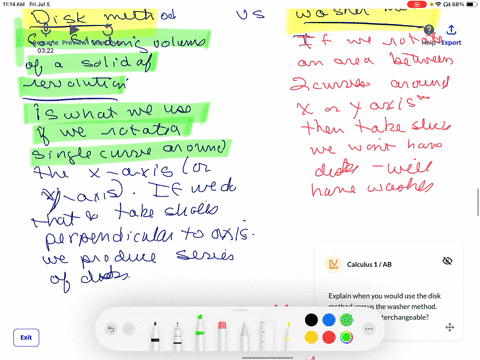 11:14 AM Fri Jul 5
68%
Disk method vs washer
Preview
03:22
Help
Export
for finding volume
of a solid of
revolution
is what we use
if we rotate a
single curve around
the x-axis (or
y-axis). If we do
that & take slices
perpendicular to axis.
we produce series
of disks
If we rotate
an area between
2 curves around
x or y axis
then take slices
we won't have
disks - will
have washes
Calculus 1 / AB
Explain when you would use the disk
method versus the washer method.
interchangeable?
Exit